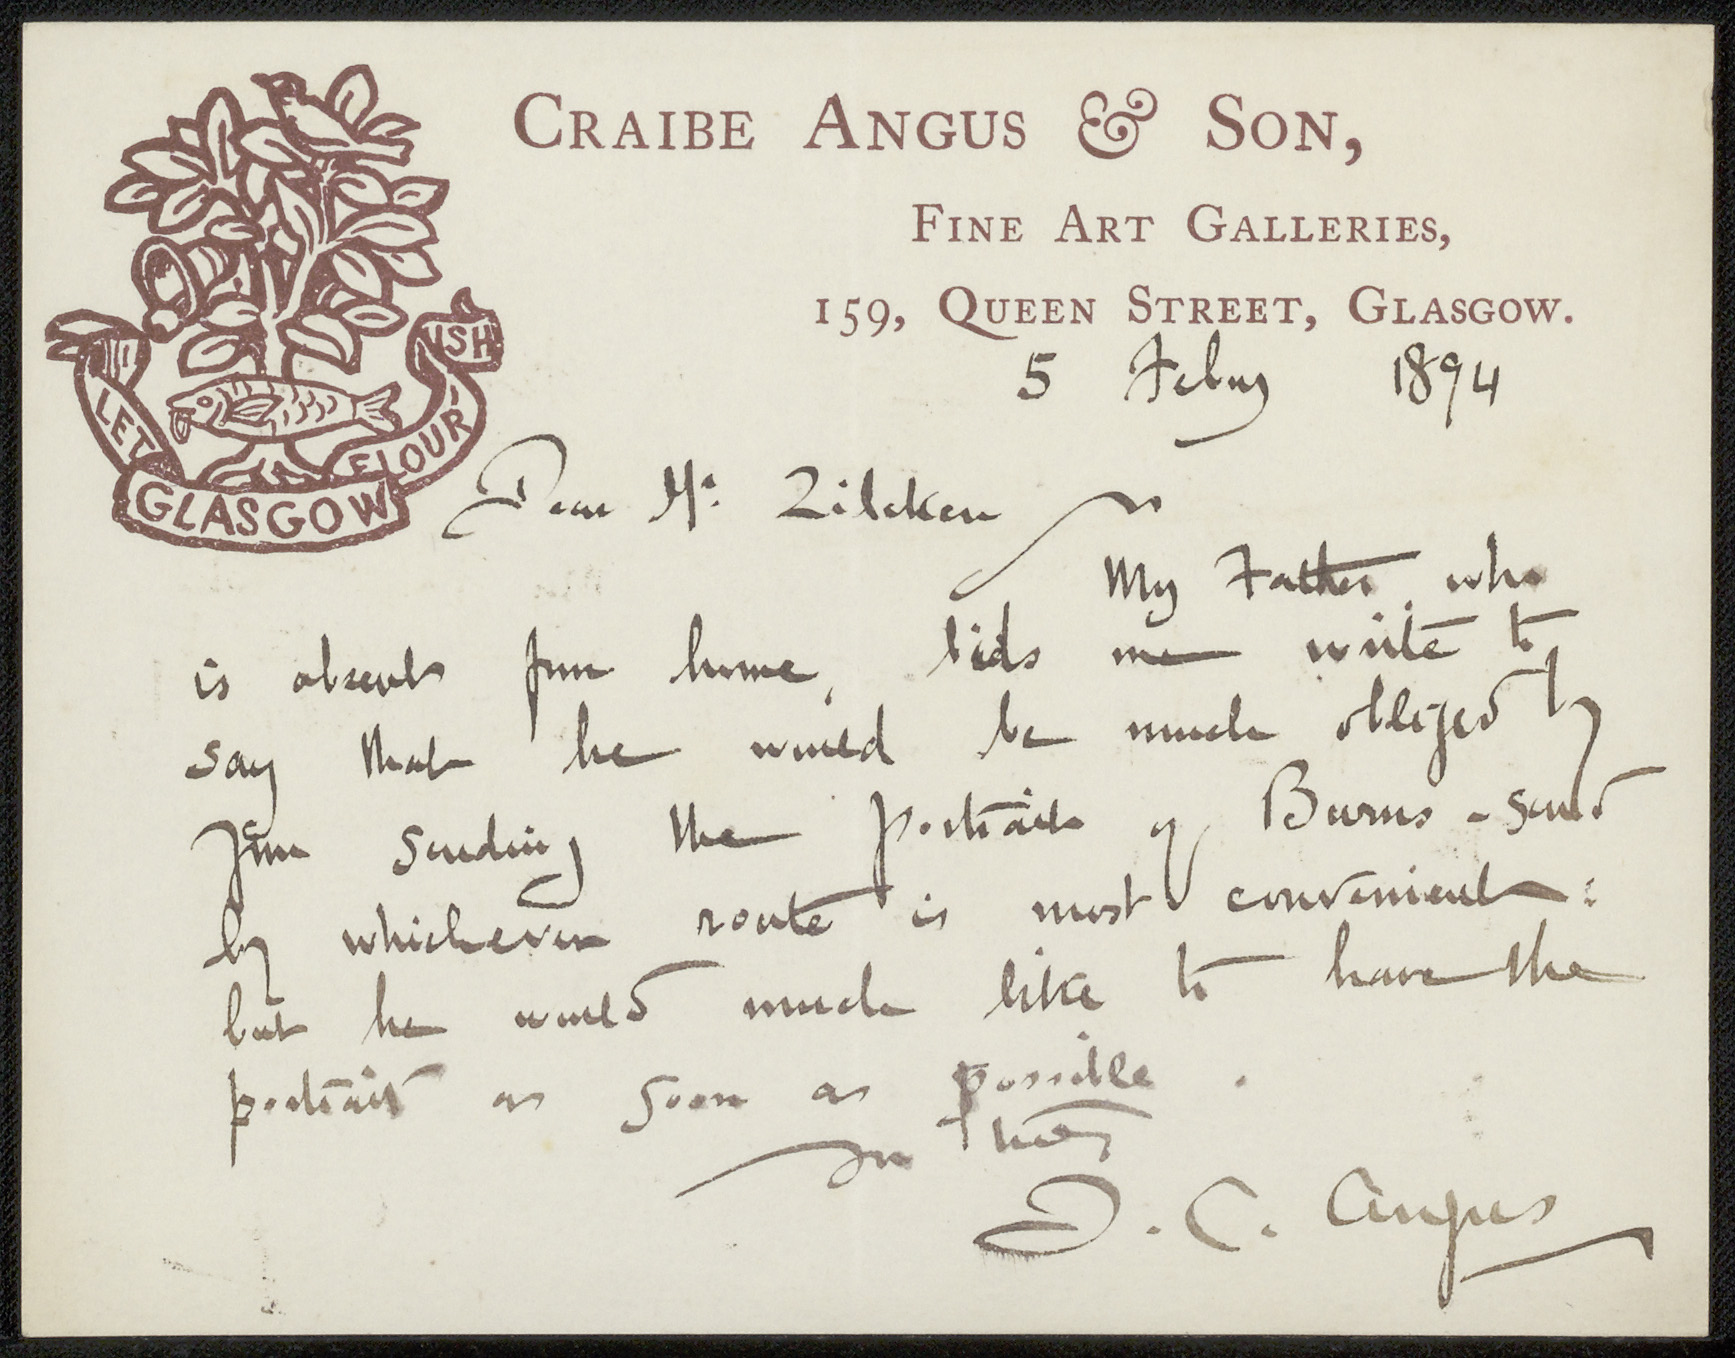 CRAIBE ANGUS & SON,
FINE ART GALLERIES,
159, QUEEN STREET, GLASGOW.
LET
GLASGOW
FLOUR
ISH
5 Feby 1894
Dear Mr. Zilcken
My Father who
is absent from home, bids me write to
say that he would be much obliged by
your sending the portraits of Burns - send
by whichever route is most convenient:
but he would much like to have the
portrait as soon as possible.
Yrs truly
D. C. Angus